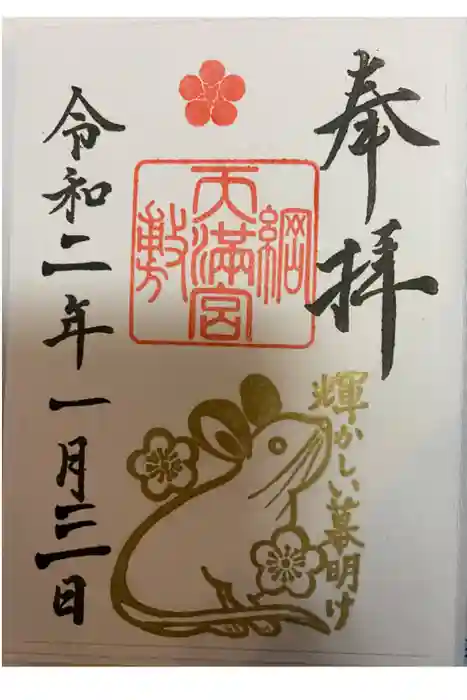 奉拝
綱
天満宮
敷
輝かしい幕明け
令和二年一月三日